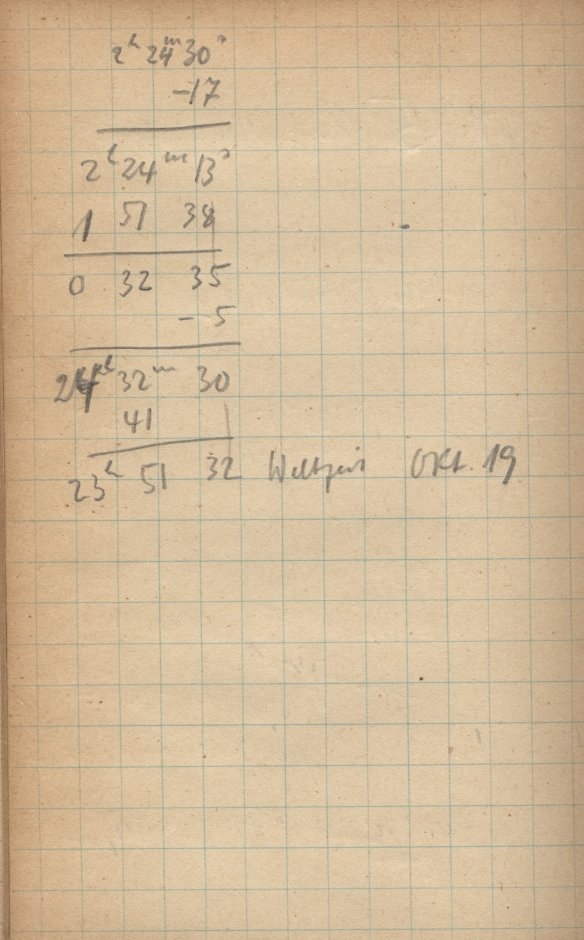 2ʰ 24ᵐ 30ˢ
-17
2ʰ 24ᵐ 13ˢ
1 51 38
0 32 35
- 5
24ʰ 32ᵐ 30
41 1
23ʰ 51 32 Weltzeit Okt. 19